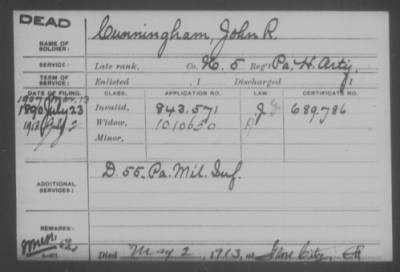 DEAD
NAME OF SOLDIER: Cunningham, John R.
SERVICE: Late rank, Co. K, 5 Reg't Pa. H. Arty.
TERM OF SERVICE: Enlisted , 1 Discharged , 1
DATE OF FILING. CLASS. APPLICATION NO. LAW. CERTIFICATE NO.
1907
1890 July 23 Invalid, 843.571 689.786
1913 July 2 Widow, 1010650
Minor,
ADDITIONAL SERVICES: D. 55. Pa. Mil. Inf.
REMARKS:
Died May 2, 1913, at City,